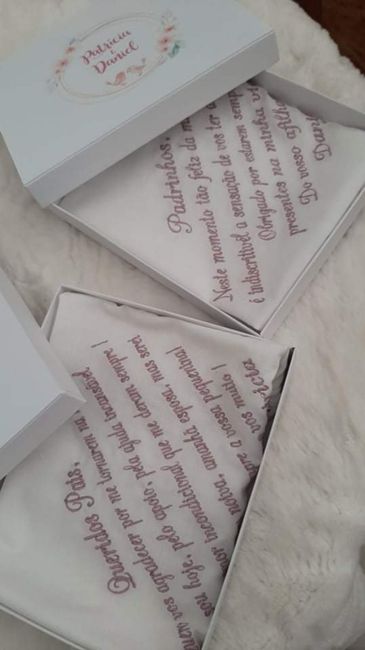 Patrícia
&
Daniel
Padrinhos,
Neste momento tão feliz da
é indiscritível a sensação de vos ter
Obrigado por estarem
presentes na minha
Do vosso
Queridos Pais,
vos agradecer por me tornarem na
sou hoje, pelo apoio, pela ajuda incansável
incondicional que me deram sempre!
noiva, amanhã esposa, mas serei
a vossa pequenina!
vos muito!